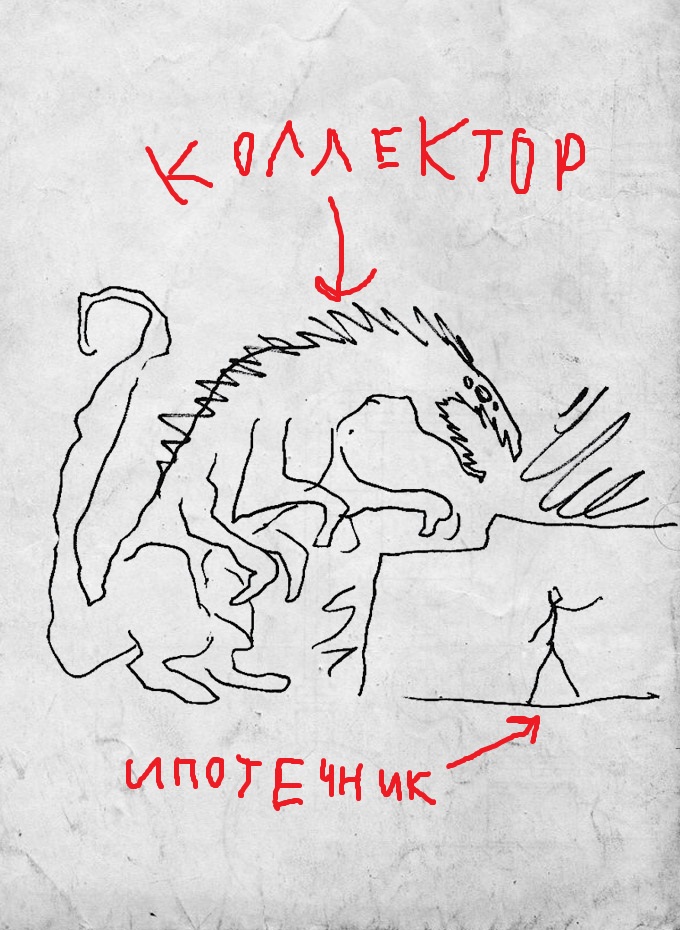 КОЛЛЕКТОР
ИПОТЕЧНИК